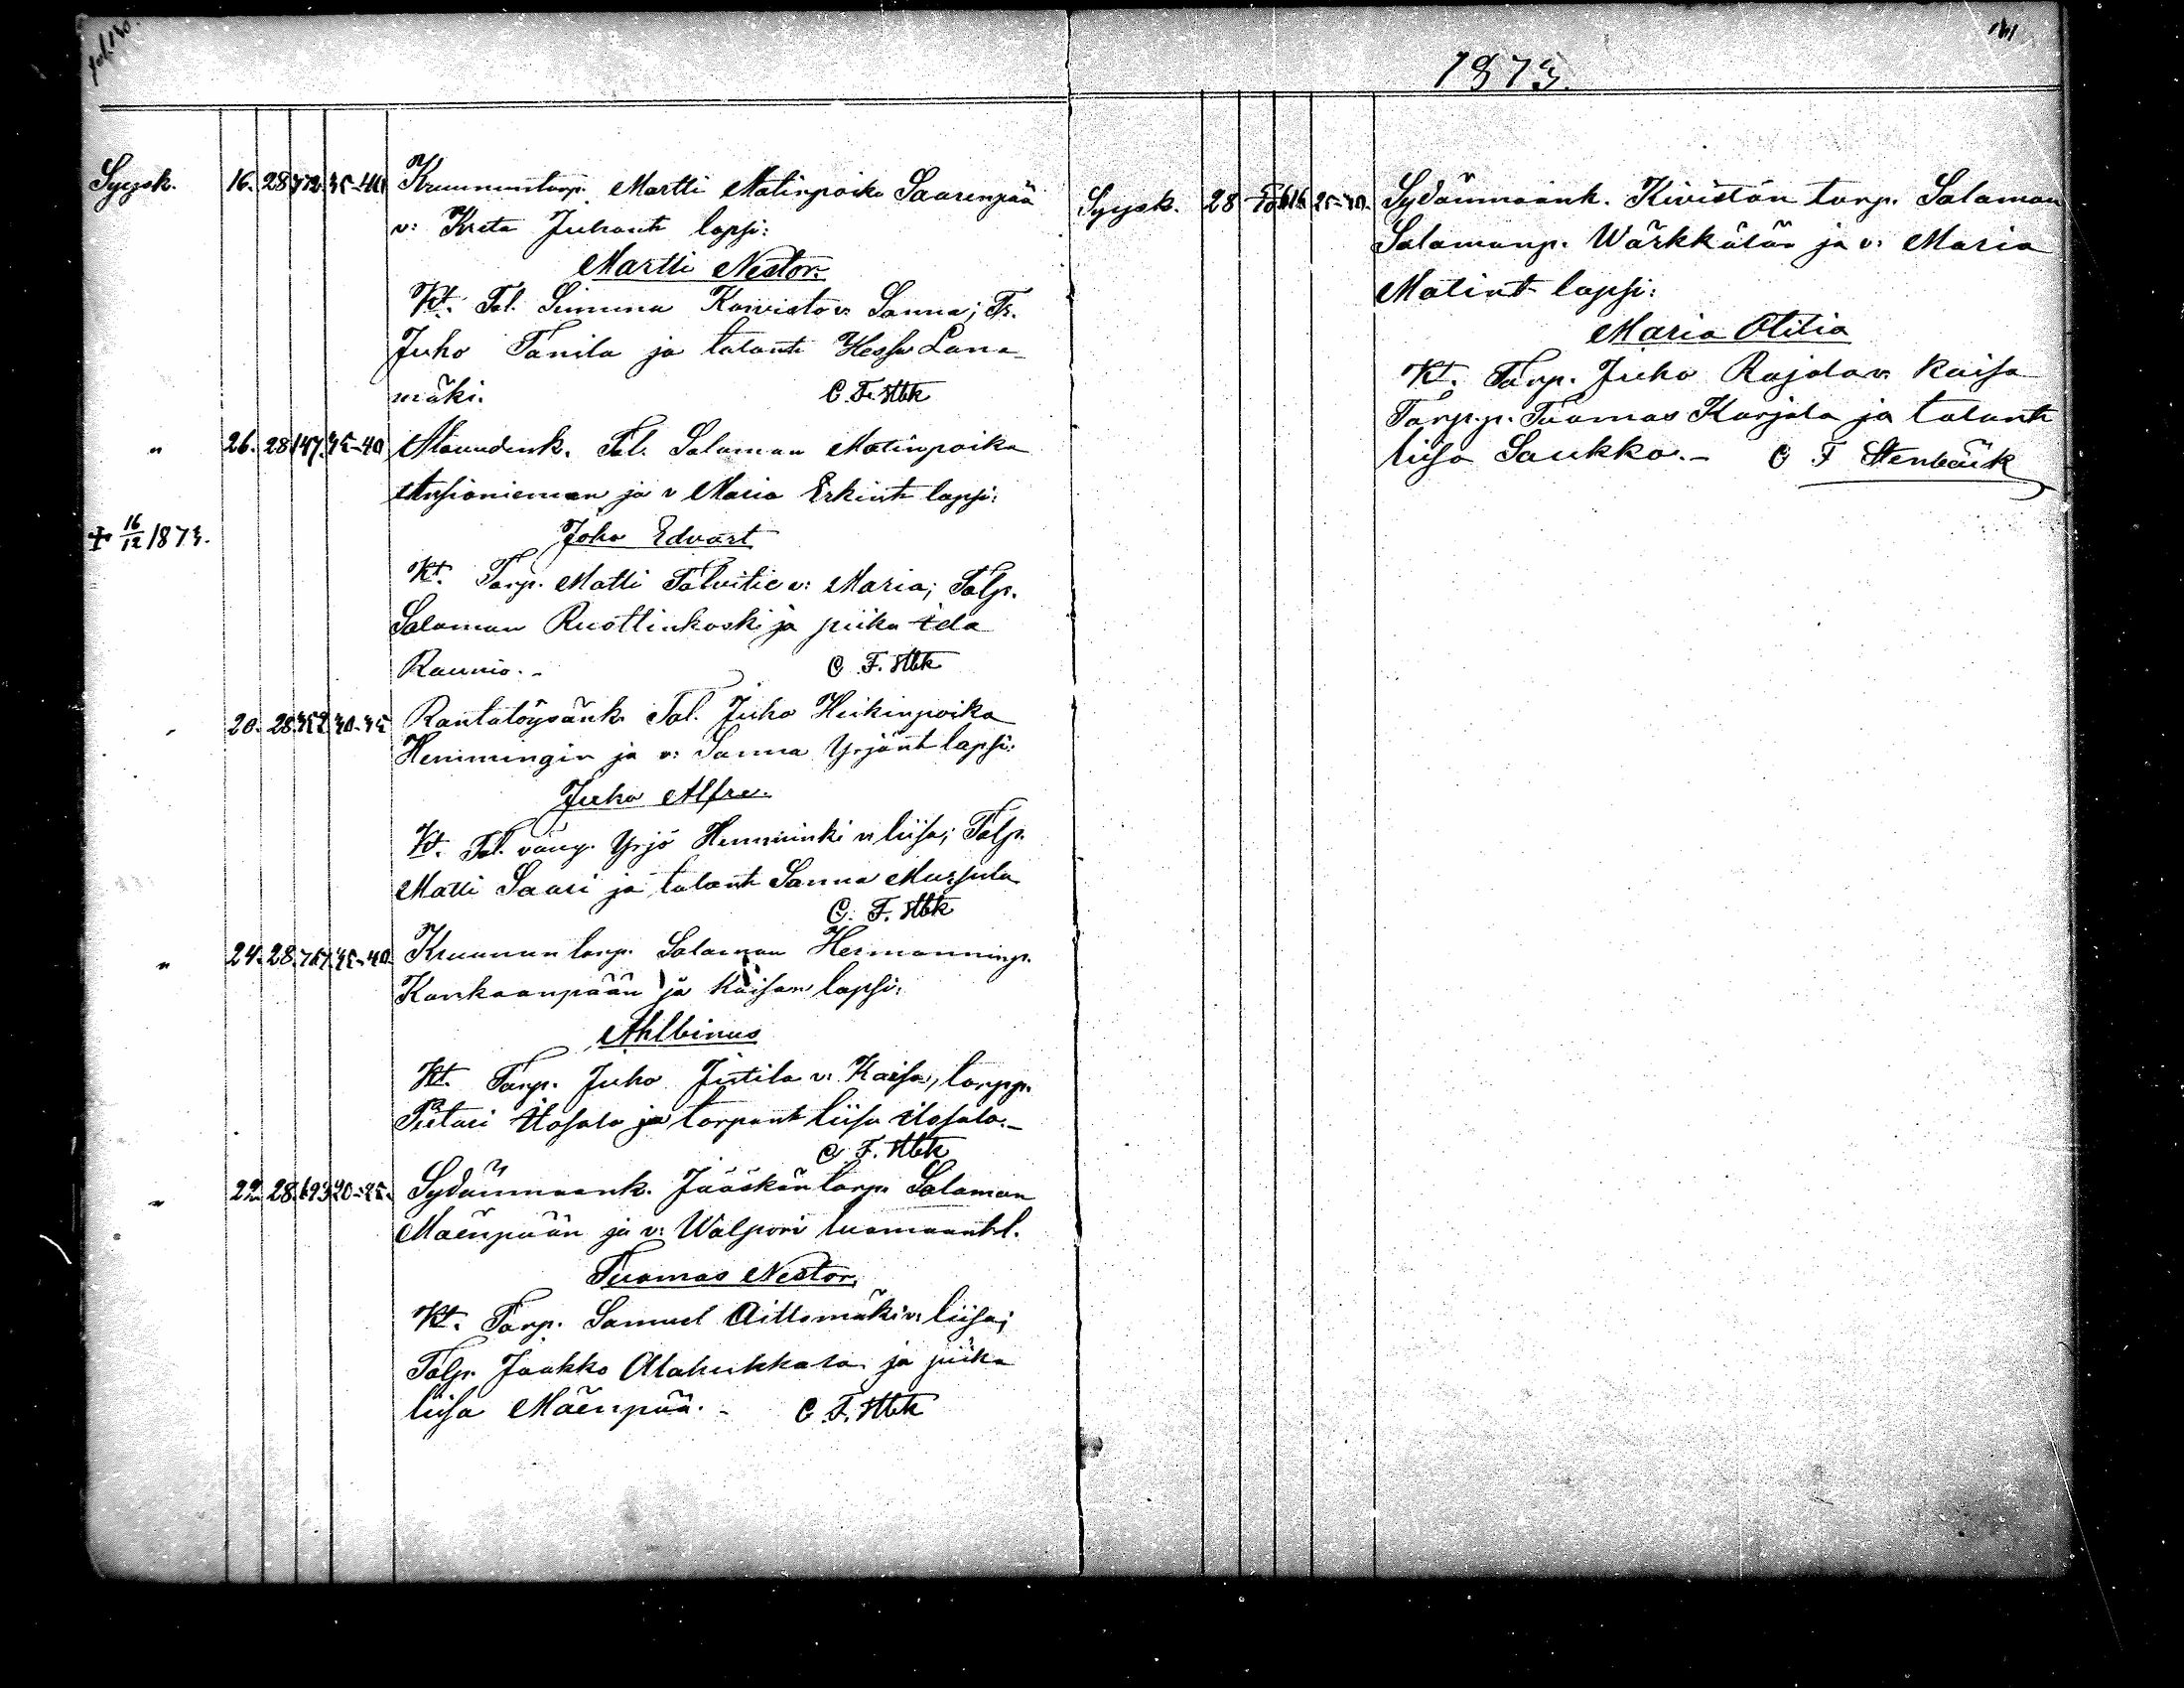 fol. 140.
Syysk. 16. 28 772 35-40 Kruununtorp. Martti Matinpoika Saarenpää
v: Kreta Juhont lapsi:
Martti Nestor.
Kt. Tal. Simuna Koivisto v. Sanna; Tr.
Juho Tanila ja talont Hessa Lana-
mäki. C. F. Stbk
" 26. 28 147. 35-40 Alavudenk. Tal. Salomon Matinpoika
ja v Maria Erkint lapsi:
Joho Edvart
+ 16/12 1873.
Kt. Torp. Matti Talvitie v: Maria; Talp.
Salomon Ruottinkoski ja piika Ida
Raunio.- C. F. Stbk
" 20. 28 352 30-35 Rantatöysänk. Tal. Juho Heikinpoika
Hemmingin ja v: Sanna Yrjönt lapsi:
Juho Alfre.
Kt. Tal. väng. Yrjö Hemminki v. liisa; Talp.
Matti Saari ja talont Sanna Mursula
C. F. Stbk
" 24. 28. 767. 35-40. Kruunun torp. Salomon Hermanninp.
Kankaanpään ja Kaisan lapsi:
Ahlbinus
Kt. Torp. Juho Jutila v: Kaisa, torpp.
Pietari Ilosala ja torpant liisa Ilosala.-
C. F. Stbk
" 22. 28. 693 20-25. Sydänmaank. Jääskän torp. Salomon
Mäenpään ja v: Walpori tuomaant l.
Tuomas Nestor,
Kt. Torp. Samuel Aittomäki v: liisa;
Talp. Jaakko Alahukkala ja piika
liisa Mäenpää.- C. F. Stbk
141
1873.
Syysk. 28 5/10 616 25-30. Sydänmaank. Kivistön torp. Salomon
Salomonp. Wärkkälän ja v: Maria
Matint lapsi:
Maria Otilia
Kt. Torp. Juho Rajala v. Kaisa
Torp.p. Tuomas Karjala ja talont
liisa Saukko.- C F Stenbäck